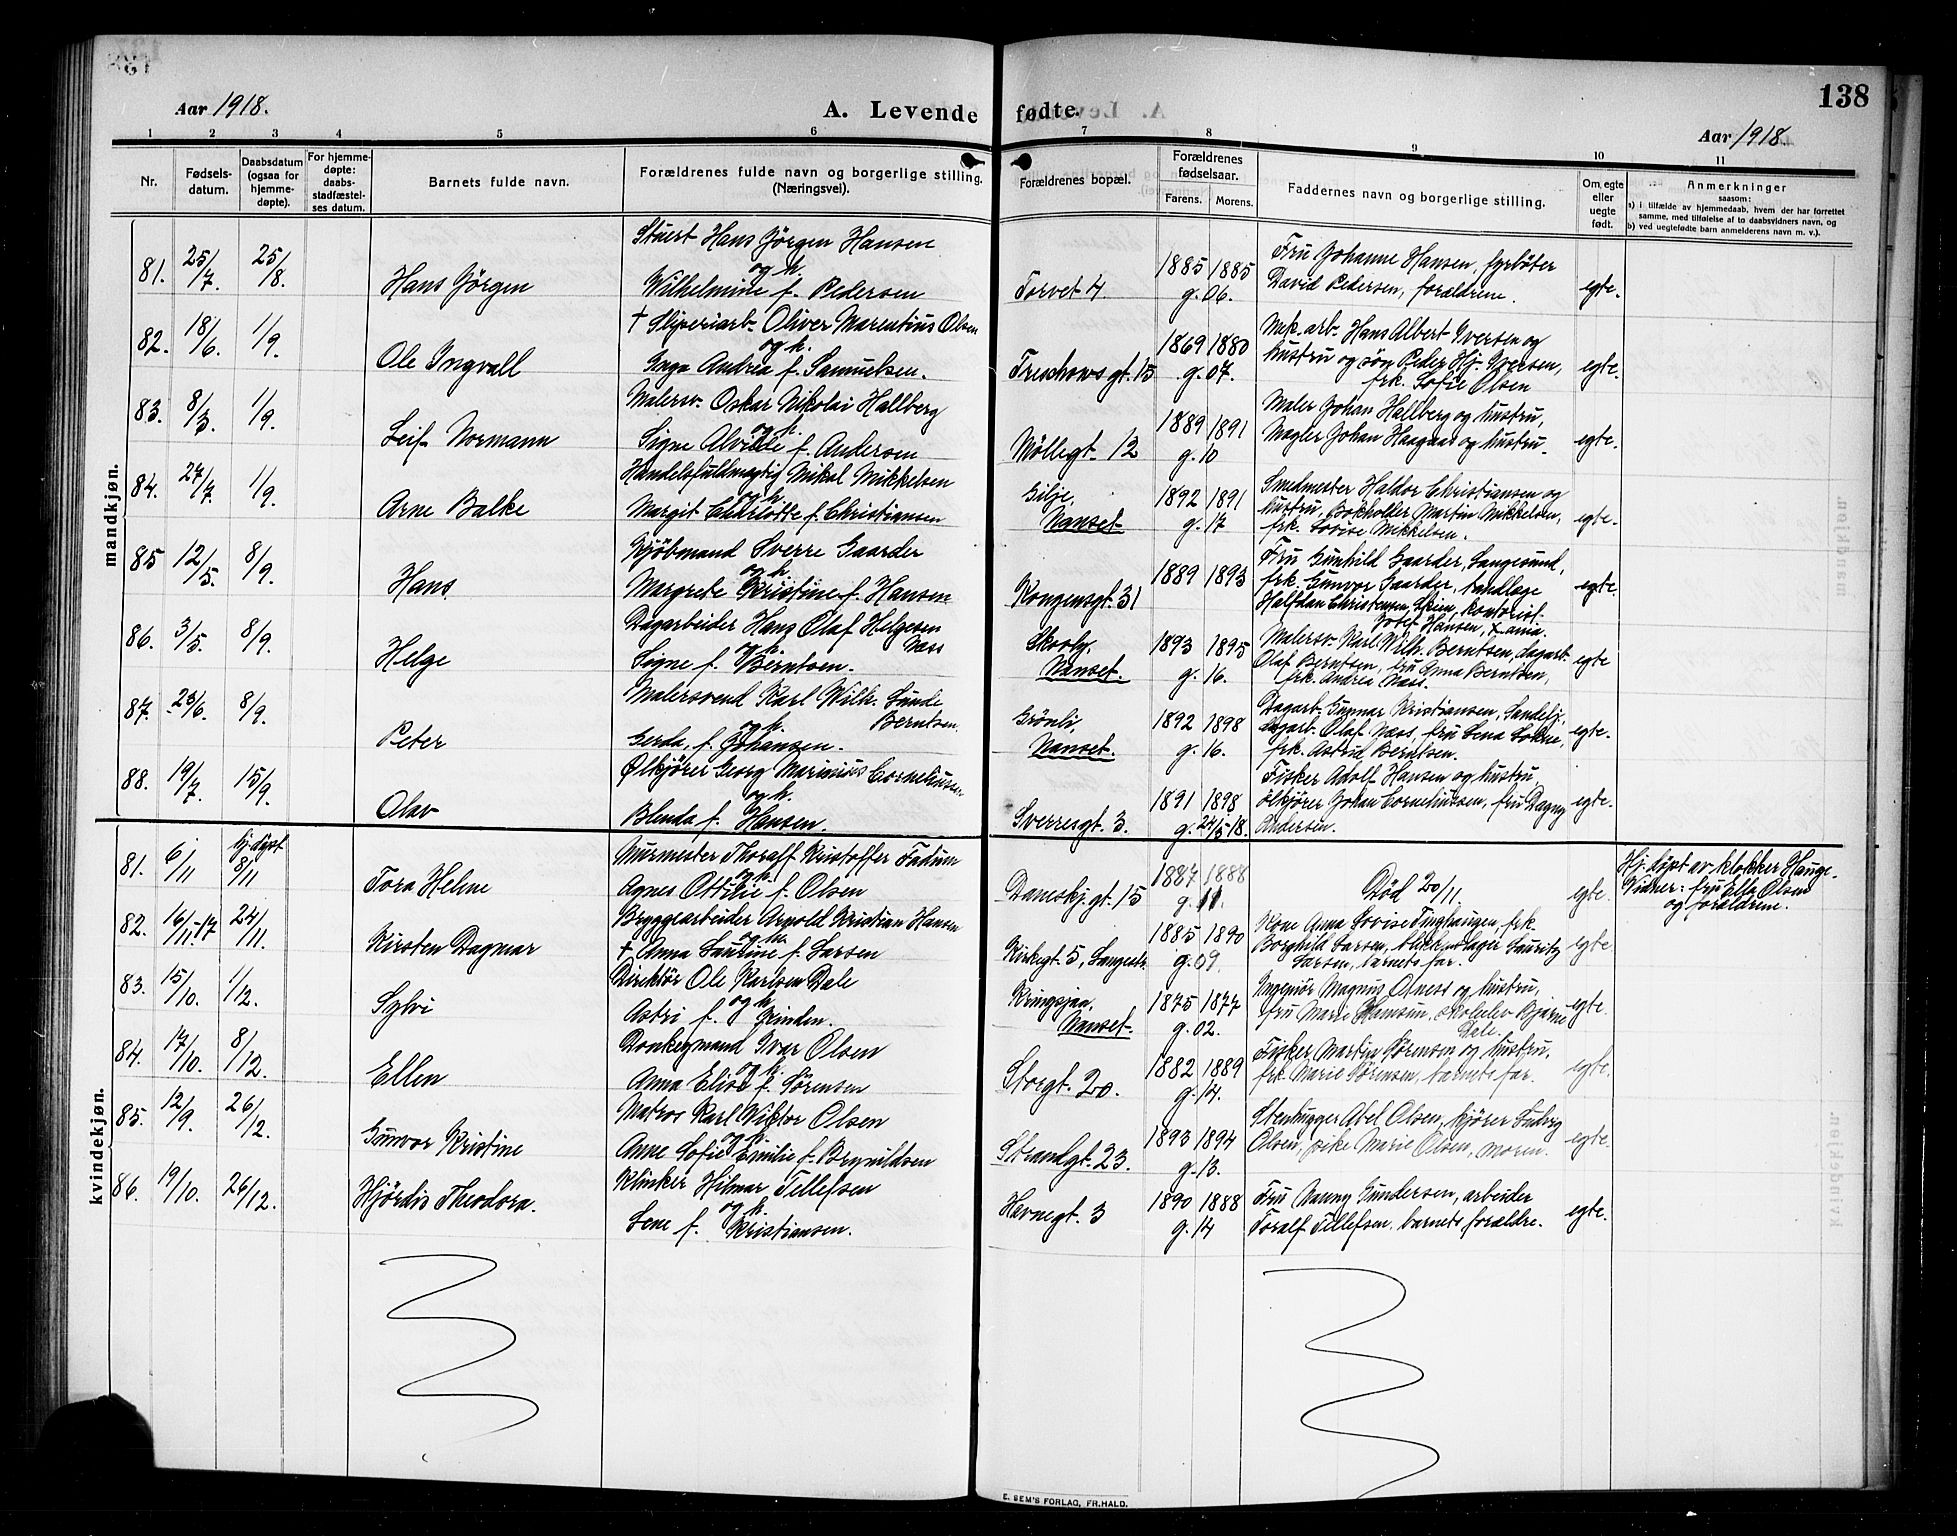 138
Aar 1918.
A. Levende fødte.
Aar 1918.
1 2 3 4 5 6 7 8 9 10 11
Nr.
Fødsels-
datum.
Daabsdatum
(ogsaa for
hjemme-
døpte).
For hjemme-
døpte:
daabs-
stadfæstel-
ses datum.
Barnets fulde navn.
Forældrenes fulde navn og borgerlige stilling.
(Næringsvei).
Forældrenes bopæl.
Forældrenes
fødselsaar.
Farens. Morens.
Faddernes navn og borgerlige stilling.
Om egte
eller
uegte
født.
Anmerkninger
saasom:
a) i tilfælde av hjemmedaab, hvem der har forrettet
samme, med tilføielse af to daabsvidners navn, og
b) ved uegtefødte barn anmelderens navn m. v.).
mandkjøn.
81. 25/7. 25/8. Hans Jörgen
Stuert Hans Jörgen Hansen
og h.
Wilhelmine f. Pedersen
Torvet 4.
1885 1885
g. 06.
Fru Johanne Hansen, fyrböter
David Pedersen, forældrene.
egte.
82. 18/6. 1/9. Ole Ingvall
† Sliperiarb. Oliver Marentius Olsen
og h.
Inga Andrea f. Samuelsen.
Treschowsgt. 15
1869 1880
g. 07.
Mek. arb. Hans Albert Iversen og
hustru og sön Peder Hj. Iversen,
frk. Sofie Olsen
egte.
83. 8/3. 1/9. Leif Normann
Malersv. Oskar Nikolai Hallberg
og h.
Signe Alvilde f. Andersen
Möllegt. 12
1889 1891
g. 10
Maler Johan Hallberg og hustru,
Mægler Johan Haagaas og hustru.
egte.
84. 24/7. 1/9. Arne Balke
Handelsfuldmægtig Nikol Mikkelsen
og h.
Margit Charlotte f. Christiansen
Gilje,
Nanset
1892 1891
g. 17
Smedmester Haldor Christiansen og
hustru, Bokholder Martin Mikkelsen,
frk. Lovise Mikkelsen.
egte.
85 12/5. 8/9. Hans
Kjöbmand Sverre Gaarder
og h.
Margrete Kristine f. Hansen
Kongensgt. 31
1889 1893
Fru Gunhild Gaarder, Langesund,
frk. Gunvor Gaarder, tandlæge
Halfdan Christensen, Skien, kontorist
Josef Hansen,
egte.
86. 3/5. 8/9. Helge
Dagarbeider Hans Olaf Helgesen
Næss
og h.
Signe f. Berntsen.
Skovly,
Nanset.
1893 1895
g. 16.
Malersv. Karl Wilh. Berntsen, dagarb.
Olaf Berntsen, fru Anna Berntsen,
frk. Andrea Næss.
egte
87. 23/6. 8/9. Peter
Malersvend Karl Wilh. Lunde
Berntsen.
og h.
Gerda, f. Johansen.
Grönli,
Nanset.
1892 1898
g. 16.
Dagarb. Gunnar Kristiansen, Sandefj.
dagarb. Olaf Næss, fru Lena Lokne,
frk. Astrid Berntsen.
egte.
88. 19/7. 15/9. Olav
Ølkjörer Georg Marinius Corneliussen
og h.
Blenda f. Hansen.
Sverresgt. 3.
1891 1898
g. 24/5-18.
Fisker Adolf Hansen og hustru,
ölkjörer Johan Corneliussen, fru Dagny
Andersen.
egte.
kvindekjøn.
81. 6/11 hj. döpt 8/11 Tora Helene
Murmester Thoralf Kristoffer Fadum
og h.
Agnes Ottilie f. Olsen
Dameskj.gt. 15
1887 1888
g. 11.
Död 20/11.
egte.
Hj. döpt av klokker Hauge.
Vidner: fru Ella Olsen
og forældrene.
82. 16/11-17 24/11. Kirsten Dagmar
Bryggearbeider Arnold Kristian Hansen
† Anna Laurine f. Larsen
Kirkegt. 5, Langestr.
1885 1890
g. 09.
Kone Anna Lovise Tinghaugen, frk.
Borghild Larsen, blikkenslager Lauritz
Larsen, barnets far.
egte
83. 15/10. 1/12. Sylvi
Direktör Ole Karlsen Dale
og h.
Astri f. Grinden.
Kringsjaa,
Nanset.
1875 1877
g. 02.
Ingeniör Magnus Alness og hustru,
fru Marie Hamsun, skoleelev Bjarne
Dale.
egte.
84. 17/10. 8/12. Ellen
Donkeymand Ivar Olsen
og h.
Anna Elise f. Sörensen
Storgt. 20.
1882 1889
g. 14.
Fisker Martin Sörensen og hustru,
frk. Marie Sörensen, barnets far.
egte.
85. 12/9. 26/12. Gunvor Kristine
Matros Karl Viktor Olsen
og h.
Anne Sofie Emilie f. Brynildsen
Strandgt. 23.
1893 1894
g. 13.
Stenhugger Abel Olsen, kjörer Ludvig
Olsen, pike Marie Olsen, moren.
egte.
86. 19/10. 26/12. Hjördis Theodora.
Klinker Hilmar Tellefsen
og h.
Lene f. Kristiansen.
Havnegt. 3
1890 1888
g. 14
Fru Nanny Gundersen, arbeider
Toralf Tellefsen, barnets forældre.
egte.
E. SEM'S FORLAG, FR.HALD.